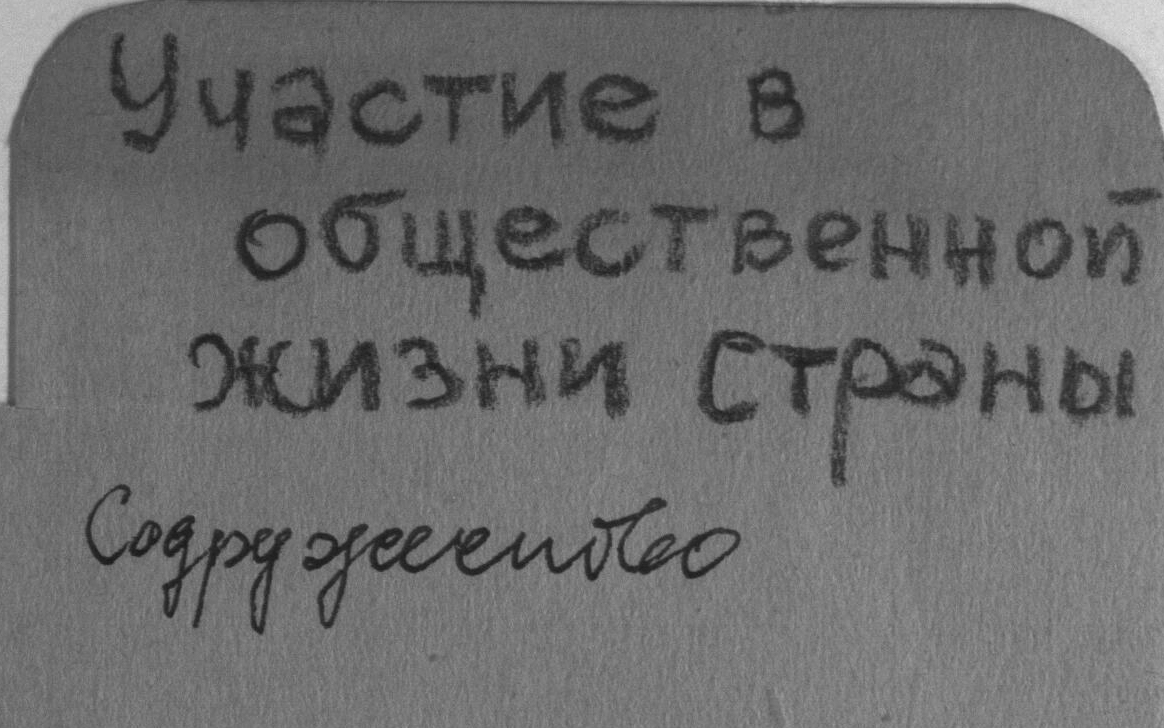 Участие в
общественной
жизни страны
Содружество